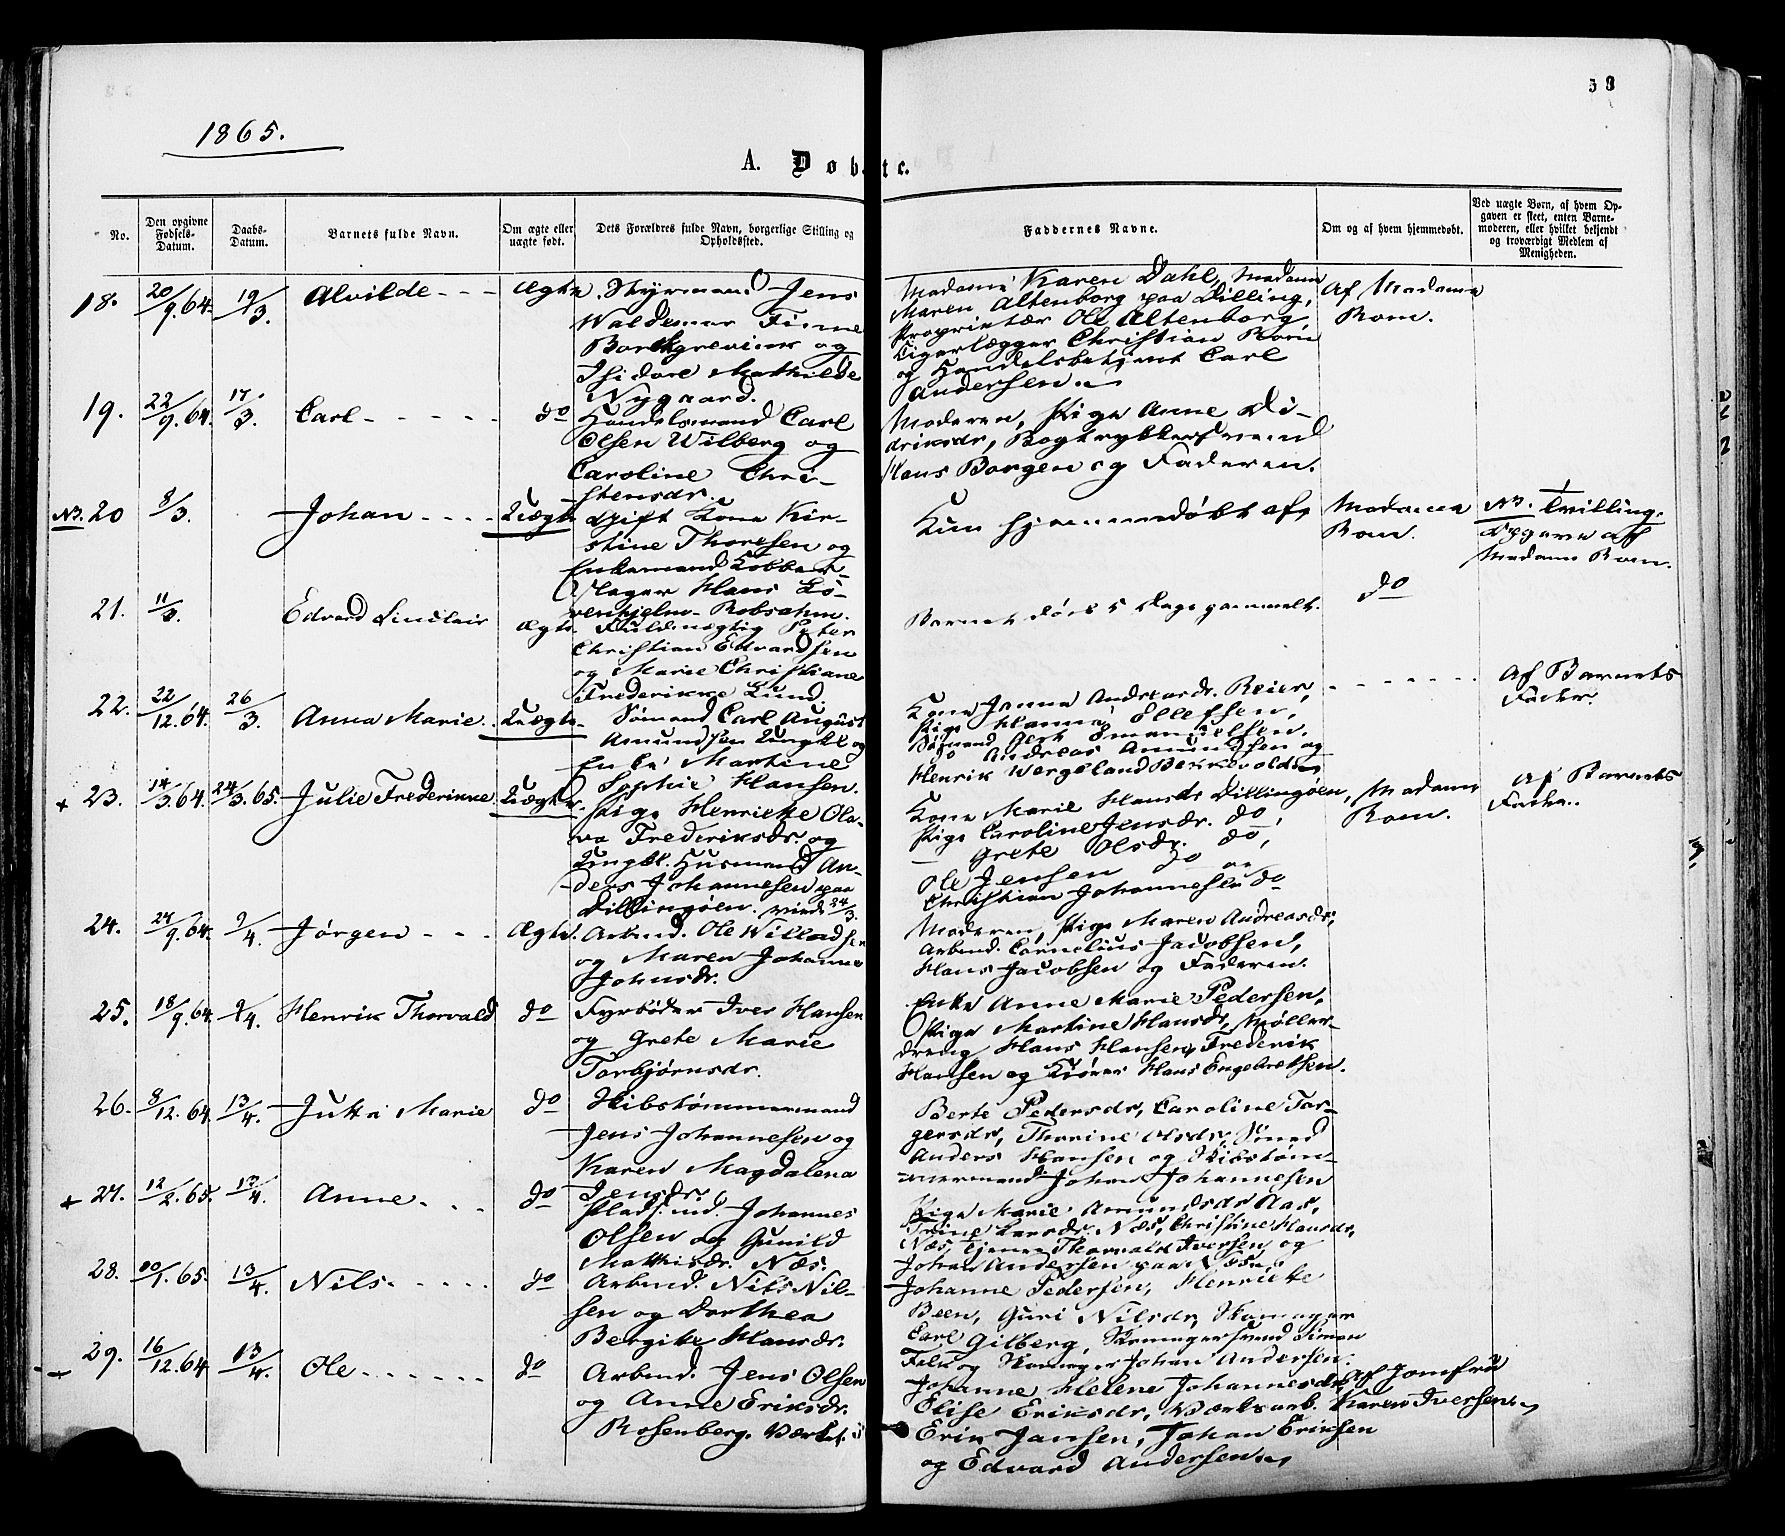 38
1865.
A. Døbte.
No.
Den opgivne Fødsels-Datum.
Daabs-Datum.
Barnets fulde Navn.
Om ægte eller uægte født.
Dets Forældres fulde Navn, borgerlige Stilling og Opholdssted.
Faddernes Navne.
Om og af hvem hjemmedøbt.
Ved uægte Børn, af hvem Opgaven er skeet, enten Barnemoderen, eller hvilket bekjendt og troværdigt Medlem af Menigheden.
18. 20/9.64. 19/3. Alvilde - - - Ægte.
Styrmand Jens
Waldemar Finne
Borchgrevink og
Isidore Mathilde
Nygaard.
Madame Karen Dahl, Madam
Maren Altenborg paa Dilling,
Proprietær Ole Altenborg,
Cigarlægger Christian Rom
og Handelsbetjent Carl
Andersen.
Af Madame
Rom.
19. 22/9.64. 17/3. Carl - - - - - do
Handelsmand Carl
Olsen Wilberg og
Caroline Chri-
stensdr.
Moderen, Pige Anne Di-
driksdr, Bogtrykkersvend
Hans Borgen og Faderen.
NB. 20 8/3. Johan - - - - Uægte
Gift Kone Kir-
stine Thoresen og
Enkemand Kobber-
slager Hans Lö-
venhjelm Robsahm.
Kun hjemmedøbt af
Madame
Rom.
NB. Tvilling.
Opgave af
Madame Rom.
21. 11/3. Edvard Sinclair Ægte.
Fuldmægtig Peter
Christian Edvardsen
og Marie Christiane
Frederikke Lund
Barnet døde 5 Dage gammelt.
do
22. 22/12.64. 26/3. Anna Marie. Uægte.
Sømand Carl August
Amundsen Ungkl og
Enke Martine
Sophie Hansen.
Kone Janna Andreasdr. Reier,
Pige Hanna Ellefsen,
Sømand Emanuelsen,
do Andreas Amundsen og
Henrik Wergeland Bekkevold
- - - - - - -
Af Barnets
Fader.
+ 23. 14/3.64. 24/3.65. Julie Frederikke Uægte.
Pige Henriette Ola-
va Frederiksdr. og
Ungkl. Husmand An-
ders Johannesen paa
Dillingöen. 24/3.
Kone Marie Hansdr Dillingöen,
Pige Caroline Jensdr. do,
— Grete Olsdr. do,
Ole Jensen do og
Christian Johannesen do
Madame
Rom.
Af Barnets
Fader.
24. 27/9.64. 9/4. Jørgen - - - Ægte.
Arbmd. Ole Willadsen
og Maren Johanne
Johnsdr.
Moderen, Pige Maren Andreasdr,
Arbmd. Cornelius Jacobsen,
Hans Jacobsen og Faderen.
25. 18/9.64. 9/4. Henrik Thorvald do
Fyrbøder Iver Hansen
og Grete Marie
Torbjørnsdr.
Enke Anne Marie Pedersen,
Pige Martine Hansdr, Møller-
dreng Hans Hansen, Frederik
Hansen og Hans Engebretsen.
26. 8/12.64 13/4. Jutta Marie do
Skibstømmermand
Jens Johannesen og
Karen Magdalena
Jensdr.
Berte Pedersdr, Caroline Tor-
gersdr, Thorine Olsdr, Smed
Anders Hansen og Skibstøm-
mermand Johan Johannesen
+ 27. 12/2.65. 13/4. Anne - - - do
Pladsmd. Johannes
Olsen og Gunild
Mathisdr. Næs.
Pige Marie Amundsdr Aas,
Trine Larsdr. Næs, Christine Hansdr,
Næs, tjener Thorvald Iversen og
Johan Andersen paa Næs.
28. 1.65. 13/4. Nils - - - - do
Arbmd. Nils Nil-
sen og Dorthea
Bergite Hansdr.
Johanne Pedersen, Henriette
Been, Guri Nilsdr, Skomager
Carl Gilberg, Skomagersvend Simon
Falk og Skomager Johan Andersen.
— 29. 16/12.64 13/4. Ole - - - - - - do
Arbmd. Jens Olsen
og Anne Eriksdr.
Rosenberg. Værket.
Johanne Helene Johannesdr,
Elise Eriksdr, Værksarb.
Erik Jansen, Johan Eriksen
og Edvard Andersen.
Af Jomfru
Karen Iversen.